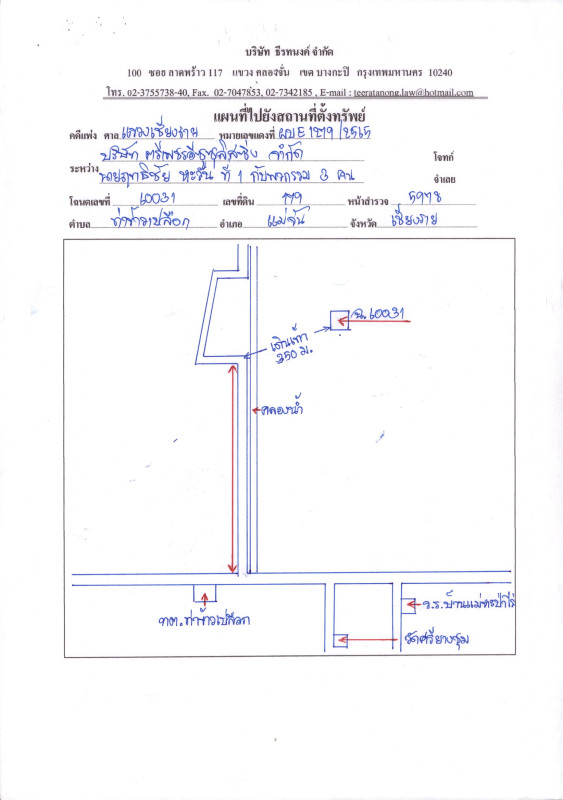 บริษัท ธีรทนงค์ จำกัด
100 ซอย ลาดพร้าว 117 แขวง คลองจั่น เขต บางกะปิ กรุงเทพมหานคร 10240
โทร. 02-3755738-40, Fax. 02-7047853, 02-7342185 , E-mail : teeratanong.law@hotmail.com
แผนที่ไปยังสถานที่ตั้งทรัพย์
คดีแพ่ง ศาล แขวงเชียงราย หมายเลขแดงที่ ผบE1219/2565
บริษัท ตรีเพชรอีซูซุลิสซิ่ง จำกัด โจทก์
ระหว่าง ที่ 1 กับพวกรวม 3 คน จำเลย
โฉนดเลขที่ 60031 เลขที่ดิน 179 หน้าสำรวจ 5978
ตำบล ท่าข้าวเปลือก อำเภอ แม่จัน จังหวัด เชียงราย
ฉ.60031
เดินเท้า
350 ม.
คลองน้ำ
ทต.ท่าข้าวเปลือก
ร.ร.บ้านแม่
วัดศรียางชุม